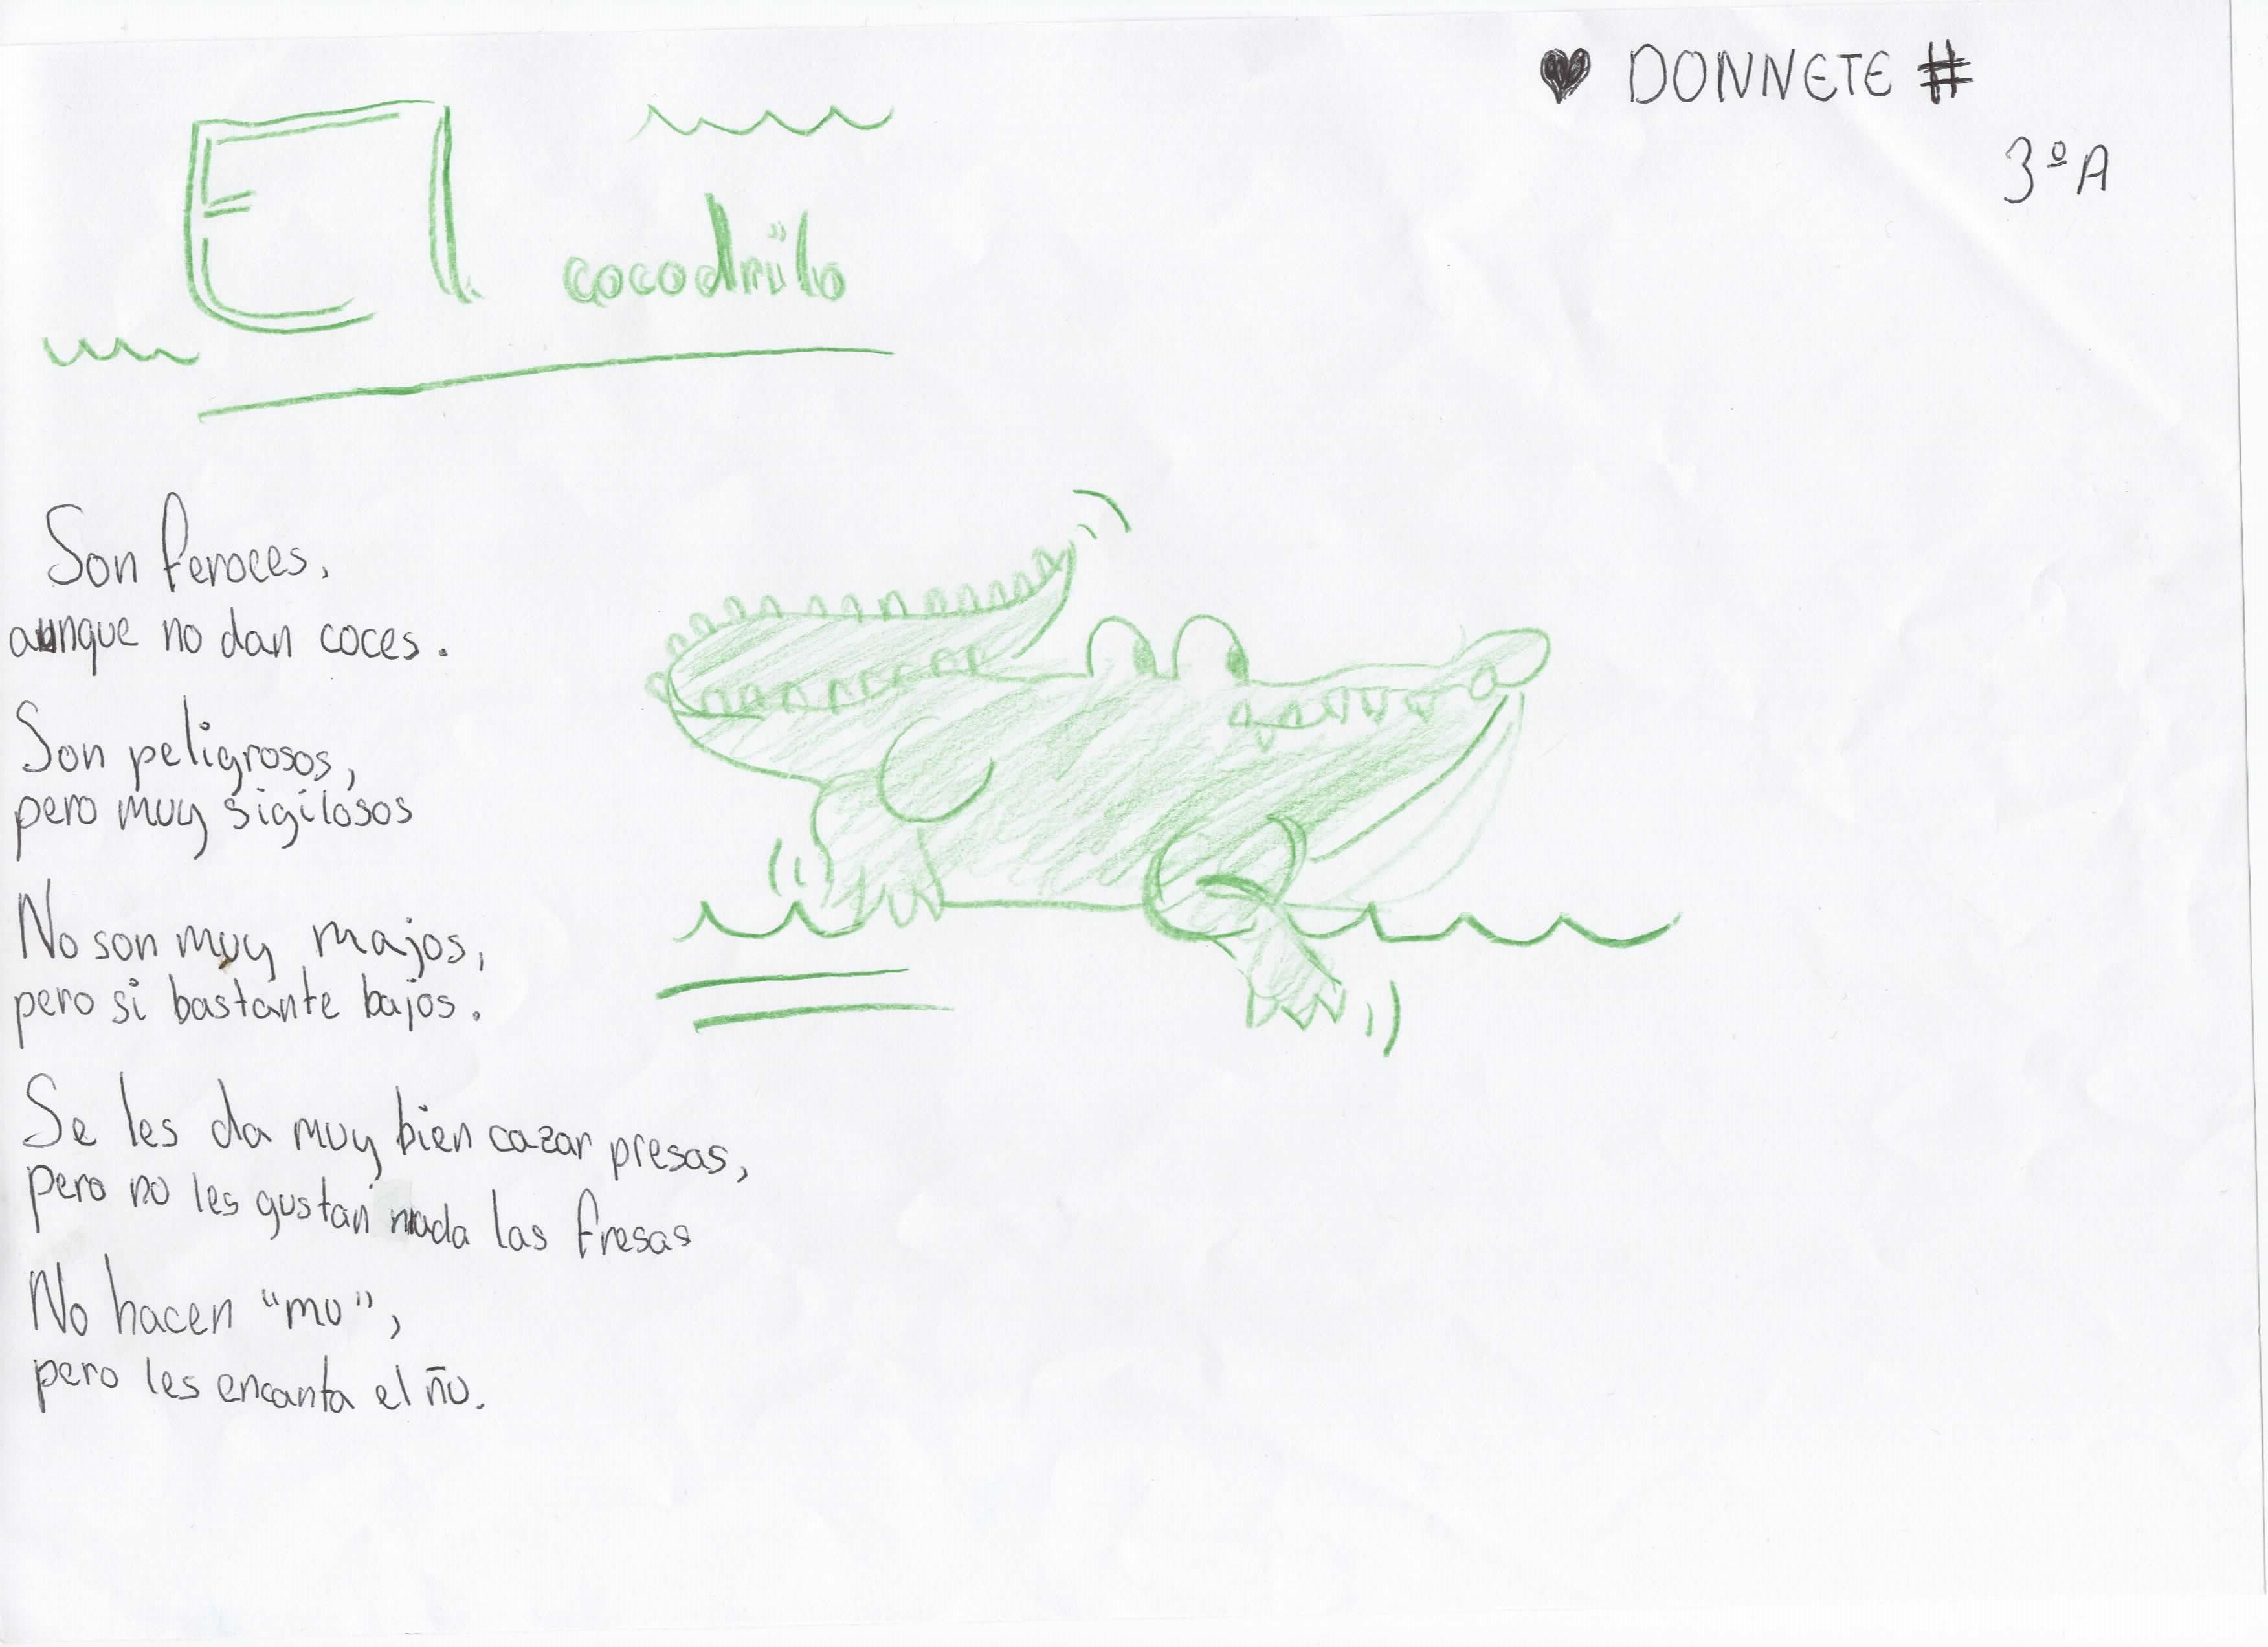 ♥ DONNETE #
3º A
El cocodrilo
Son feroces,
aunque no dan coces.
Son peligrosos,
pero muy sigilosos
No son muy majos,
pero si bastante bajos.
Se les da muy bien cazar presas,
pero no les gustan nada las fresas
No hacen "mu",
pero les encanta el ñu.